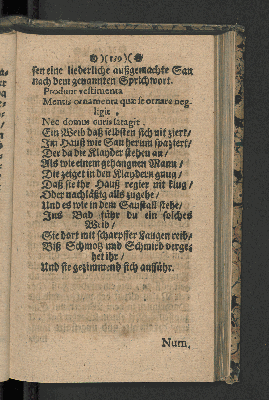 )(159)(
sen eine liederliche außgemachte Sau
nach dem genannten Sprichwort.
Produnt vestimenta
Mentis ornamenta quæ se ornare neg-
ligit,
Nec domus curis satagit.
Ein Weib daß selbsten sich nit ziert/
Im Hauß wie Sau herum spaziert/
Der da die Klayder stehen an/
Als wie einem gehangnen Mann/
Die zeiget in den Klaydern gnug/
Daß sie ihr Hauß regier nit klug/
Oder nachläßig alls zugehe/
Und es wie in dem Saustall stehe/
Ins Bad führ du ein solches
Weib/
Sie dort mit scharpffer Laugen reib/
Biß Schmotz und Schmird verge-
het ihr/
Und sie gezimmend sich aufführ.
Num.